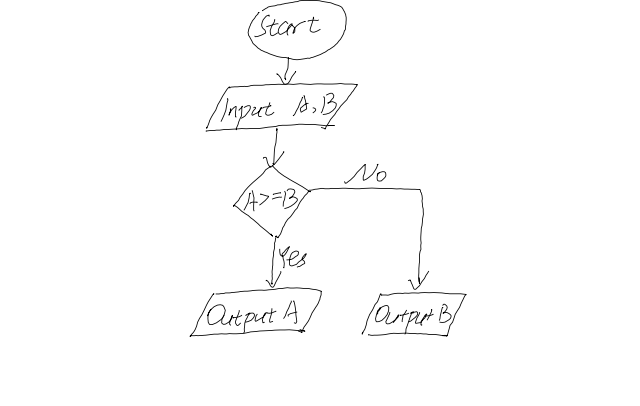 Start
Input A,B
A>=B
No
Yes
Output A
Output B